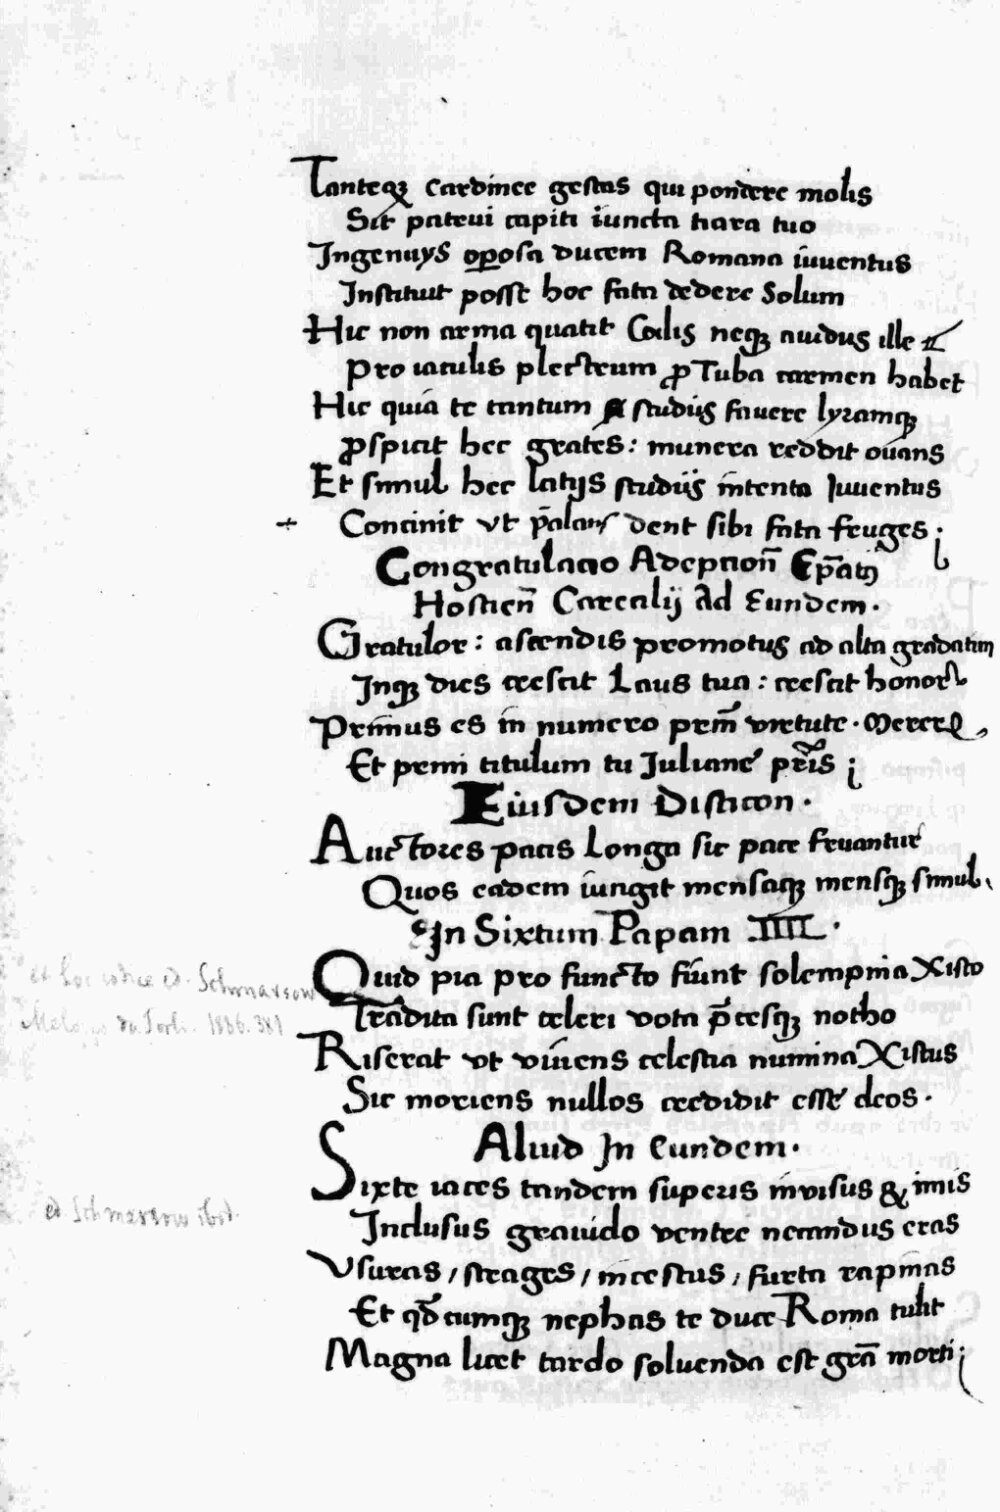 Tanteqꝫ cardinee gestas qui pondere molis
Sit patrui capiti iuncta tiara tuo
Ingenuys oꝑosa ducem Romana iuuentus
Instituit posse hoc fata dedere Solum
Hic non arma quatit Celis neqꝫ auidus ille
Pro iaculis plectrum ꝓ Tuba carmen habet
Hic quia te tantum studijs fauere lyramqꝫ
ꝓspicit hec grates: munera reddit ouans
Et simul hec latijs studijs intenta Iuuentus
+ Concinit vt p̄alans dent sibi fata fruges.
Congratulacio Adeption̄ Ep̄atꝰ
Hostien̄ Carealij Ad Eundem.
Gratulor: ascendis promotus ad alta gradatim
Inqꝫ dies crescit Laus tua: crescit honor
Primus es in numero prim̄ virtute. Mereꝛ
Et primi titulum tu Juliane pr̄is
Eiusdem Disticon.
Auctores pacis Longa sic pace fruantur
Quos eadem iungit mensaqꝫ mensqꝫ simul.
In Sixtum Papam IIII.
Quid pia pro functo fiunt solempnia Xisto
Tradita sunt celeri vota p̄cesqꝫ notho
Riserat vt viuens celestia numina Xistus
Sic moriens nullos credidit esse deos.
Aliud In Eundem.
Sixte iaces tandem superis inuisus & imis
Inclusus grauido ventre necandus eras
Vsuras / strages / incestus / furta rapinas
Et qd̄cumqꝫ nephas te duce Roma tulit
Magna licet tardo soluenda est gr̄a morti
et hoc codice ed. Schmarsow
Melozzo da Forli. 1886. 381
ed. Schmarsow ibid.